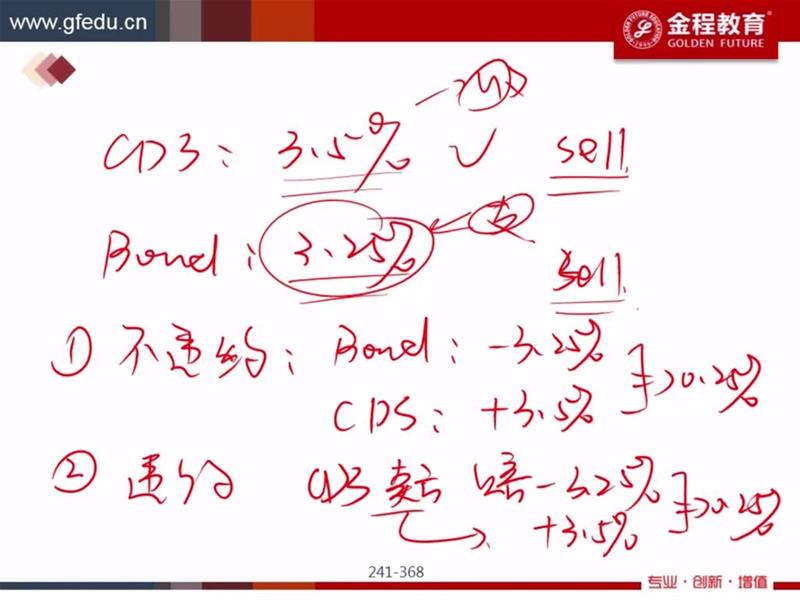 www.gfedu.cn
金程教育
GOLDEN FUTURE
CDS: 3.5% sell
Bond: 3.25% sell
① 不违约: Bond: -3.25%
CDS: +3.5% ] 0.25%
② 违约 CDS 卖方 赔 -3.25%
+3.5% ] 0.25%
241-368
专业·创新·增值